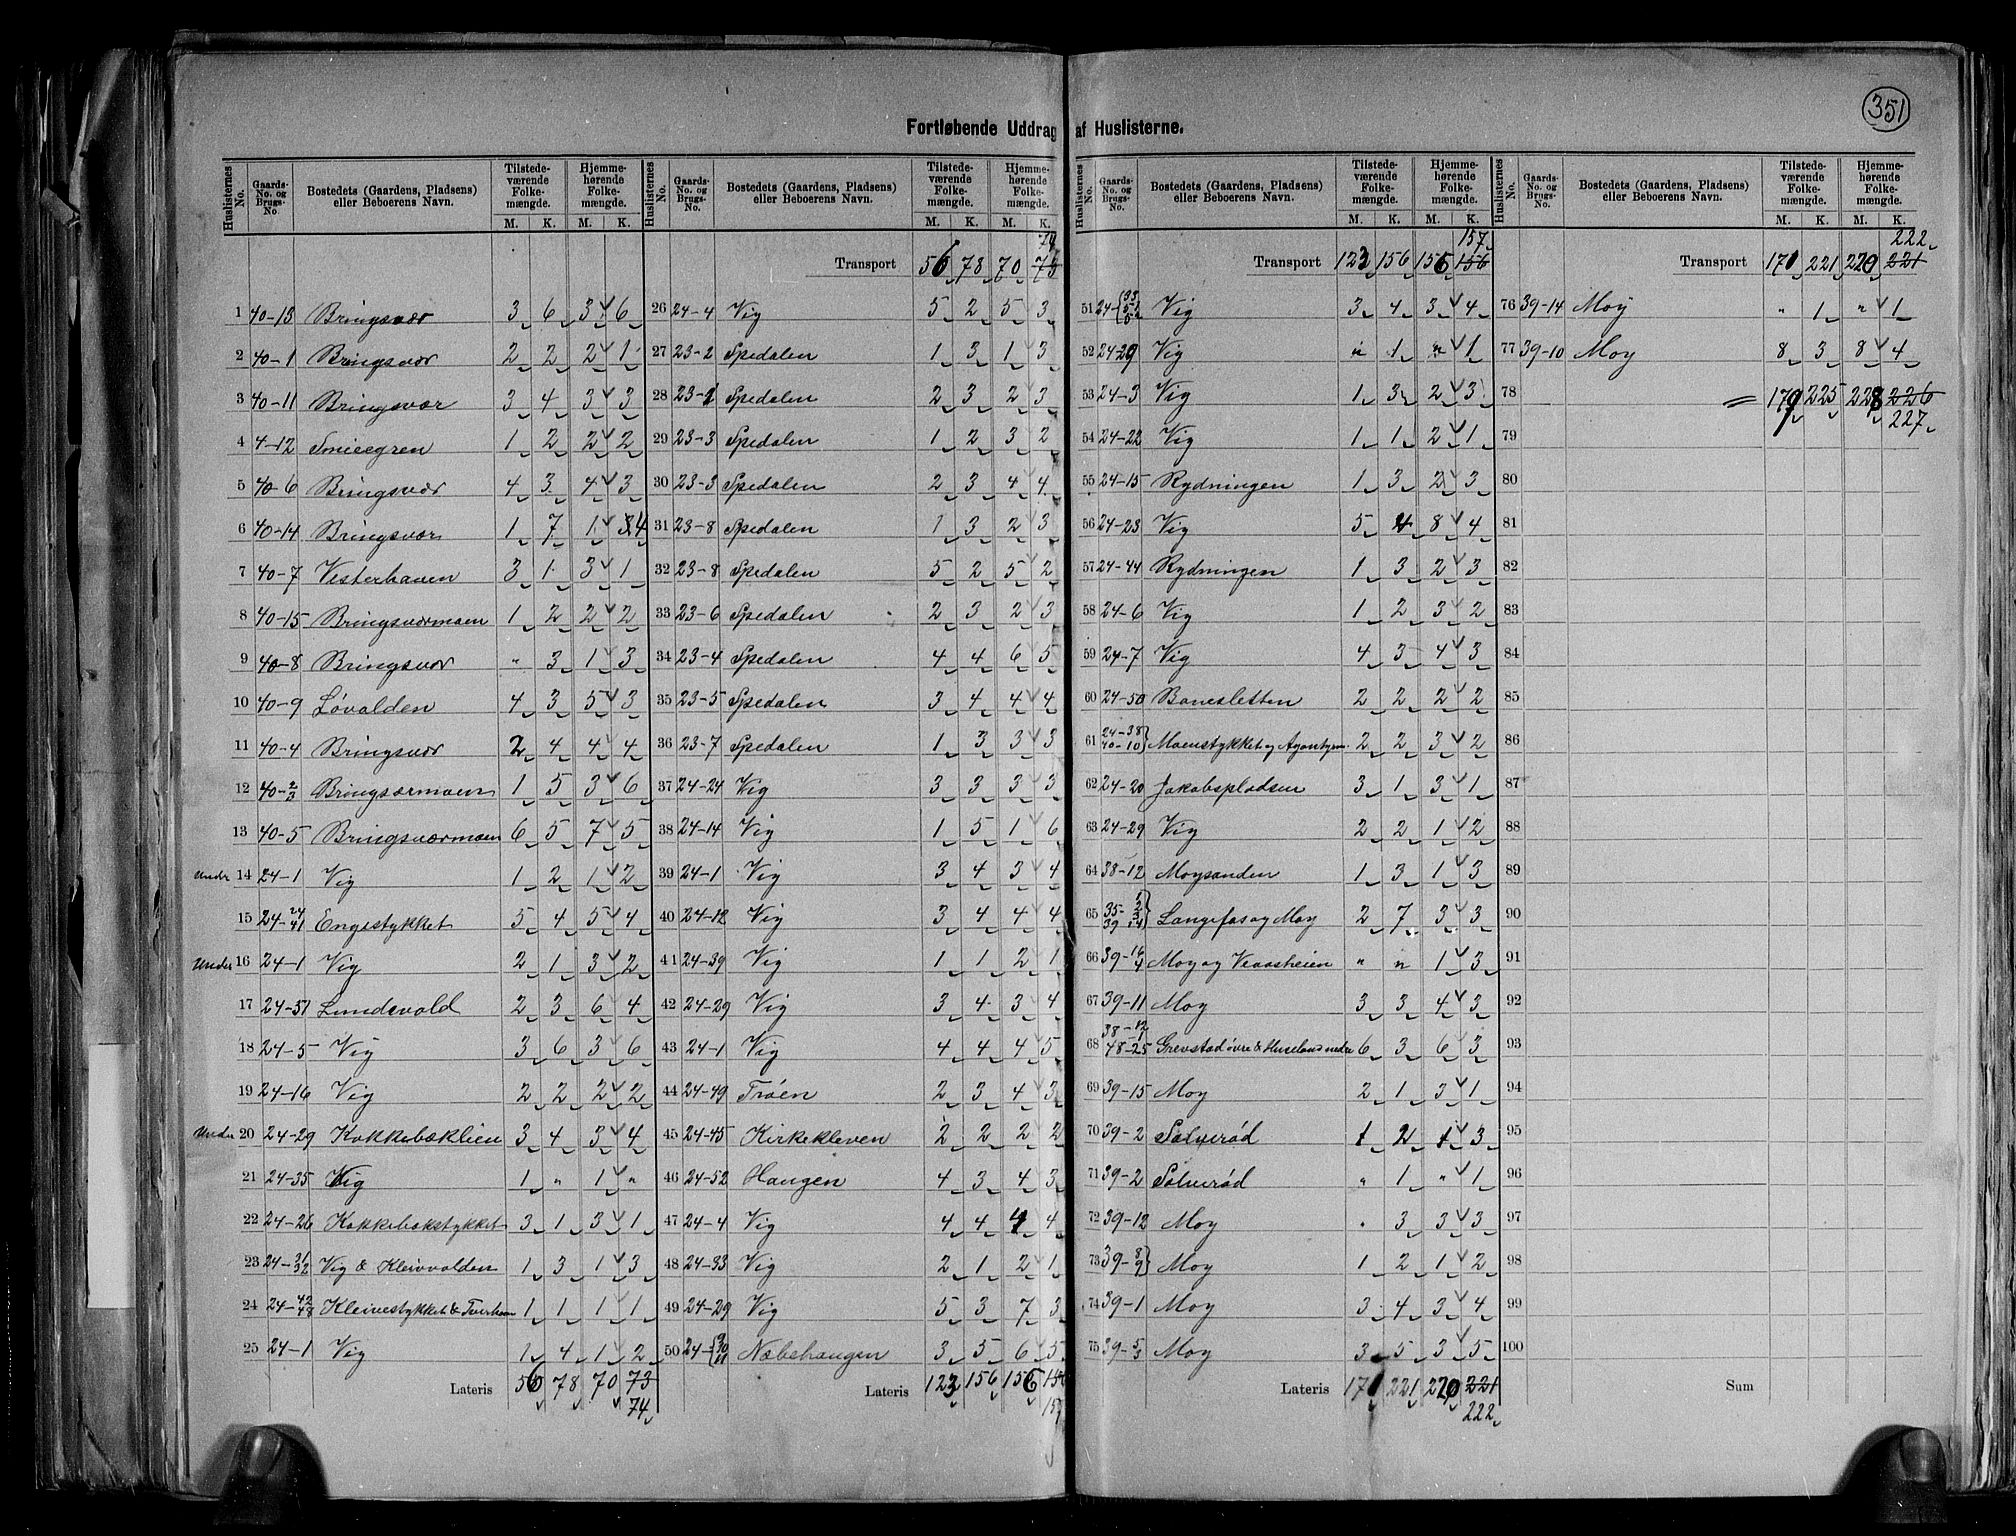 351
Fortløbende Uddrag af Huslisterne.
Huslisternes No. Gaards-No. og Brugs-No. Bostedets (Gaardens, Pladsens) eller Beboerens Navn. Tilstedeværende Folkemængde. M. K. Hjemmehørende Folkemængde. M. K.
1 40-13 Bringsvær 3 6 3 6
2 40-1 Bringsvær 2 2 2 1
3 40-11 Bringsvær 3 4 3 3
4 4-12 1 2 2 2
5 40-6 Bringsvær 4 3 4 3
6 40-14 Bringsvær 1 7 1 4
7 40-7 Vesterhaven 3 1 3 1
8 40-15 Bringsværmoen 1 2 2 2
9 40-8 Bringsvær " 3 1 3
10 40-9 Løvalden 4 3 5 3
11 40-4 Bringsvær 2 4 4 4
12 40-2/3 Bringsærmoen 1 5 3 6
13 40-5 Bringsværmoen 6 5 7 5
Under 14 24-1 Vig 1 2 1 2
15 24-24/41 Engestykket 5 4 5 4
Under 16 24-1 Vig 2 1 3 2
17 24-37 Lundevold 2 3 6 4
18 24-5 Vig 3 6 3 6
19 24-16 Vig 2 2 2 2
Under 20 24-29 Kokkebæklien 3 4 3 4
21 24-35 Vig 1 " 1 "
22 24-26 Kokkebækstykket 3 1 3 1
23 24-31/32 Vig & Kleivvolden 1 3 1 3
24 24-42/48 Kleivestykket & 1 1 1 1
25 24-1 Vig 1 4 1 2
Lateris 56 78 70 73
74
Huslisternes No. Gaards-No. og Brugs-No. Bostedets (Gaardens, Pladsens) eller Beboerens Navn. Tilstedeværende Folkemængde. M. K. Hjemmehørende Folkemængde. M. K.
74
Transport 56 78 70 73
26 24-4 Vig 5 2 5 3
27 23-2 Spedalen 1 3 1 3
28 23-1 Spedalen 2 3 2 3
29 23-3 Spedalen 1 2 3 2
30 23-3 Spedalen 2 3 4 4
31 23-8 Spedalen 1 3 2 3
32 23-8 Spedalen 5 2 5 2
33 23-6 Spedalen 2 3 2 3
34 23-4 Spedalen 4 4 6 5
35 23-5 Spedalen 3 4 4 4
36 23-7 Spedalen 1 3 3 3
37 24-24 Vig 3 3 3 3
38 24-14 Vig 1 5 1 6
39 24-1 Vig 3 4 3 4
40 24-12 Vig 3 4 4 4
41 24-39 Vig 1 1 2 1
42 24-29 Vig 3 4 3 4
43 24-1 Vig 4 4 4 5
44 24-49 Trøen 2 3 4 3
45 24-45 Kirkekleven 2 2 2 2
46 24-52 Haugen 4 3 4 3
47 24-4 Vig 4 4 4 4
48 24-33 Vig 2 1 2 1
49 24-29 Vig 5 3 7 3
50 24-30/11 Næbehaugen 3 5 6 5
Lateris 123 156 156
Huslisternes No. Gaards-No. og Brugs-No. Bostedets (Gaardens, Pladsens) eller Beboerens Navn. Tilstedeværende Folkemængde. M. K. Hjemmehørende Folkemængde. M. K.
157
Transport 123 156 156 156
51 24- Vig 3 4 3 4
52 24-29 Vig " 1 " 1
53 24-3 Vig 1 3 2 3
54 24-22 Vig 1 1 2 1
55 24-15 Rydningen 1 3 2 3
56 24-23 Vig 5 4 8 4
57 24-44 Rydningen 1 3 2 3
58 24-6 Vig 1 2 3 2
59 24-7 Vig 4 3 4 3
60 24-50 Banesletten 2 2 2 2
61 24-38 40-10 Moenstykket og 2 2 3 2
62 24-20 Jakobspladsen 3 1 3 1
63 24-29 Vig 2 2 1 2
64 38-12 Moysanden 1 3 1 3
65 35- 39 Langefos og Moy 2 7 3 3
66 39-16/4 Moy og Vraasheien " " 1 3
67 39-11 Moy 3 3 4 3
68 38-12/1 48-25 Grevstad øvre & Huseland nedre 6 3 6 3
69 39-15 Moy 2 1 3 1
70 39-2 Solverød 1 2 1 3
71 39-2 Solverød " 1 " 1
72 39-12 Moy " 3 3 3
73 39-8/9 Moy 1 2 1 2
74 39-1 Moy 3 4 3 4
75 39-5/3 Moy 3 5 3 5
Lateris 171 221 220 221
222
Huslisternes No. Gaards-No. og Brugs-No. Bostedets (Gaardens, Pladsens) eller Beboerens Navn. Tilstedeværende Folkemængde. M. K. Hjemmehørende Folkemængde. M. K.
222
Transport 171 221 220 221
76 39-14 Moy " 1 " 1
77 39-10 Moy 8 3 8 4
78 179 225 228 226
79 227
80
81
82
83
84
85
86
87
88
89
90
91
92
93
94
95
96
97
98
99
100
Sum